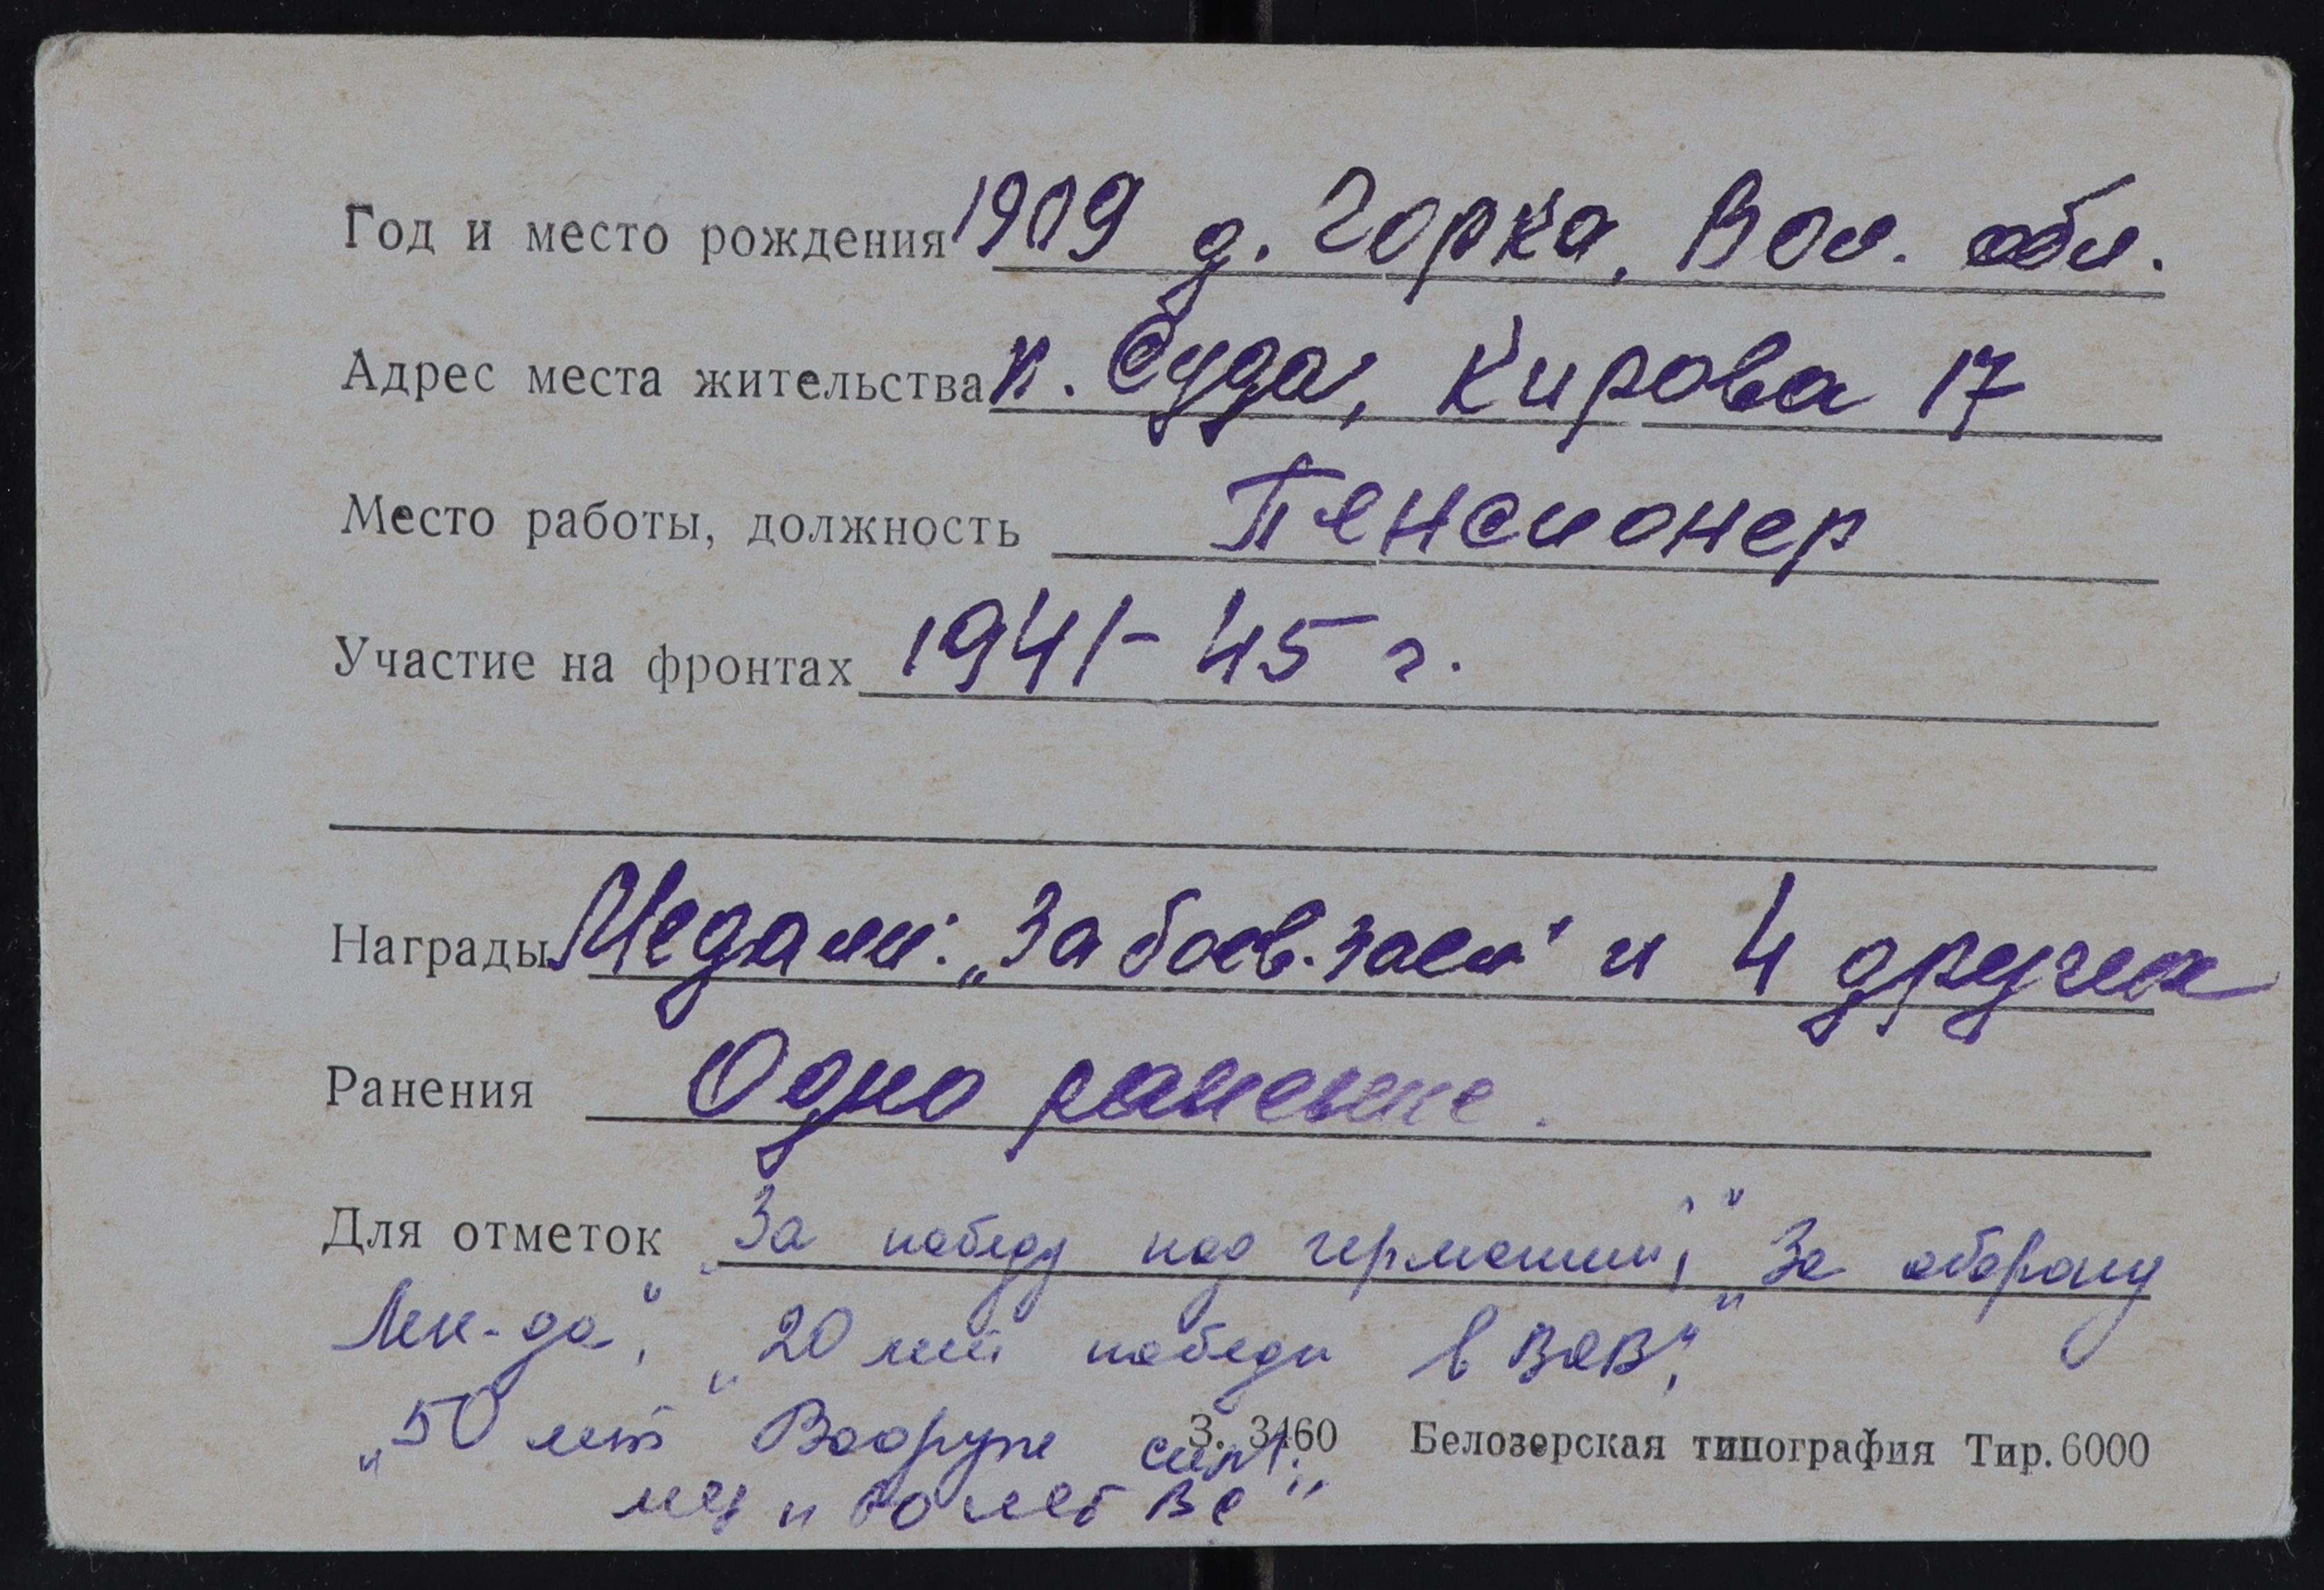 Год и место рождения 1909 д. Горка, Вол. обл.
Адрес места жительства п. Суда, Кирова 17
Место работы, должность Пенсионер
Участие на фронтах 1941-45 г.
Награды Медали: „За боев. засл“ и 4 других
Ранения Одно ранение.
Для отметок „За победу над германией“, „За оборону
Лен-да“, „20 лет победы в ВОВ“,
„50 лет Вооруж сил“,
З. 3460 Белозерская типография Тир. 6000
мед и 60 лет ВС“